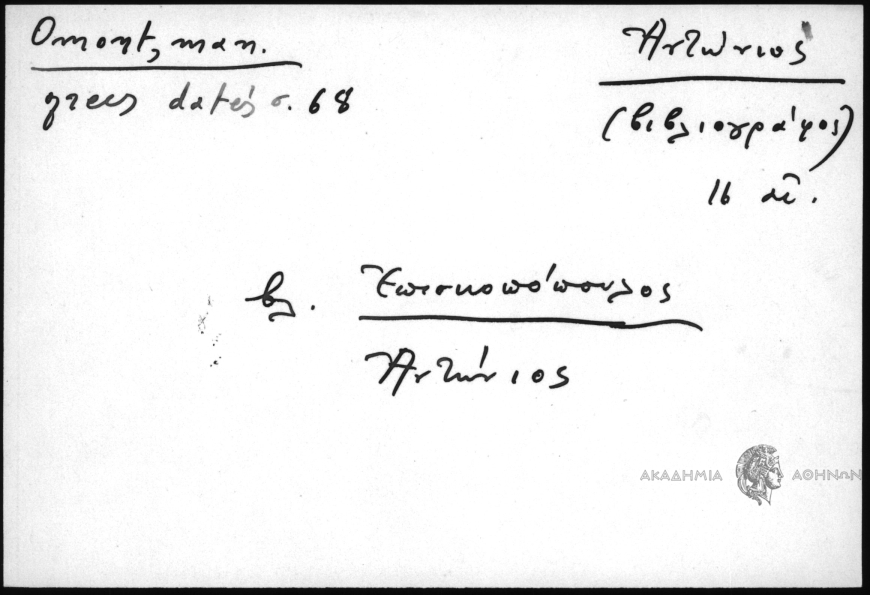 Omont, man.
grecs datés σ. 68
Ἀντώνιος
(βιβλιογράφος)
16 αἰ.
βλ. Ἐπισκοπόπουλος
Ἀντώνιος
ΑΚΑΔΗΜΙΑ ΑΘΗΝΩΝ